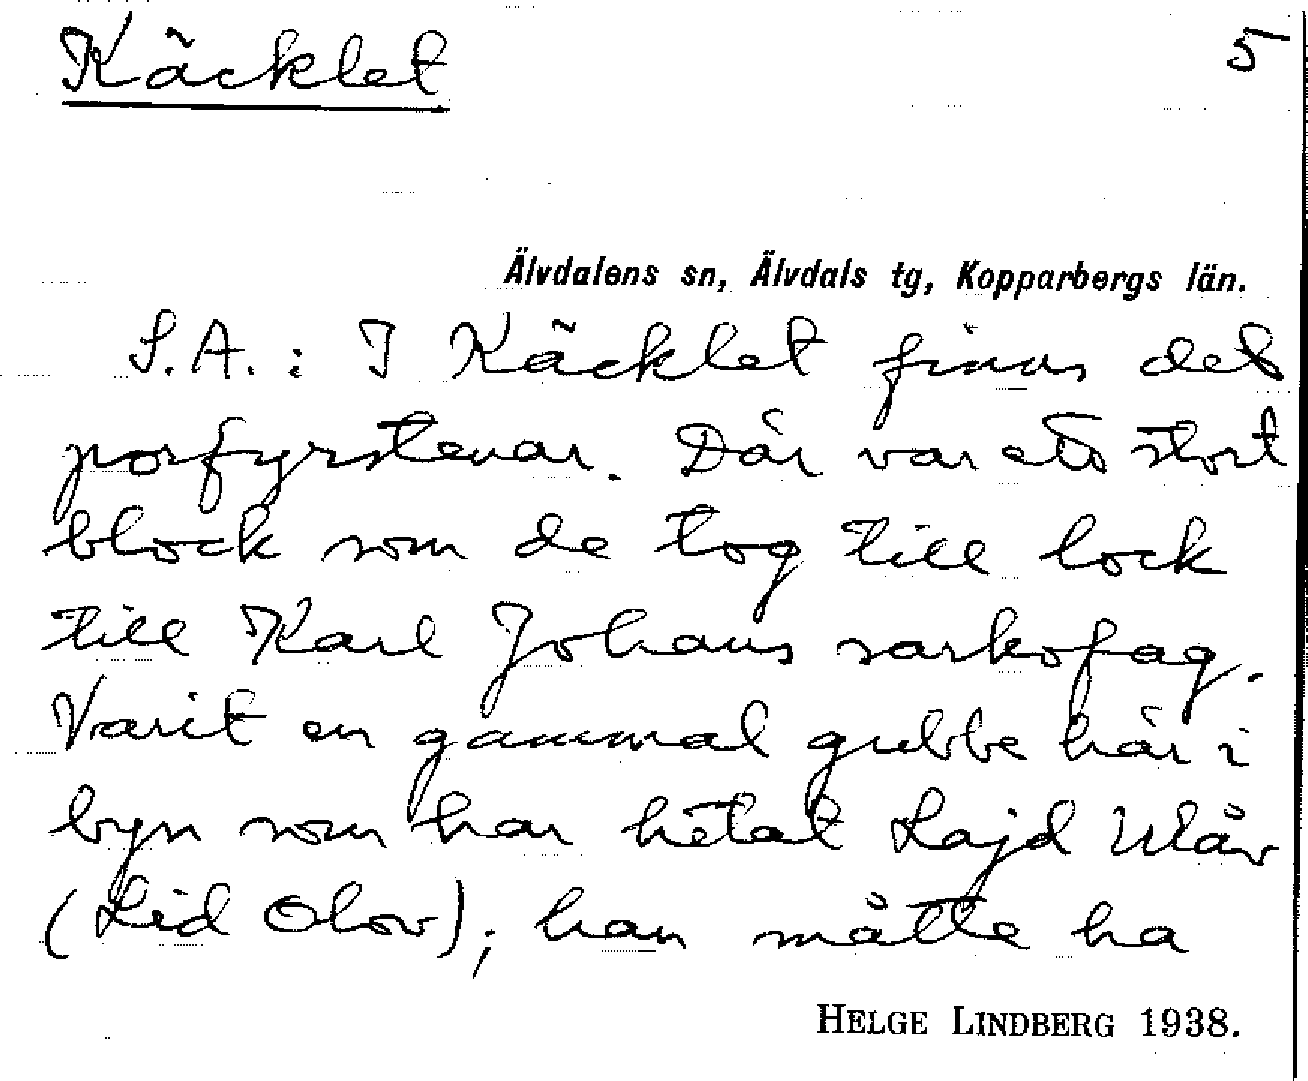 Käcklet 5
Älvdalens sn, Älvdals tg, Kopparbergs län.
S.A.: I Käcklet finns det
porfyrstenar. Där var ett stort
block som de tog till lock
till Karl Johans sarkofag.
Varit en gammal gubbe här i
byn som har hetat Lajd Ulåv
(Lid Olov); han måtte ha
HELGE LINDBERG 1938.